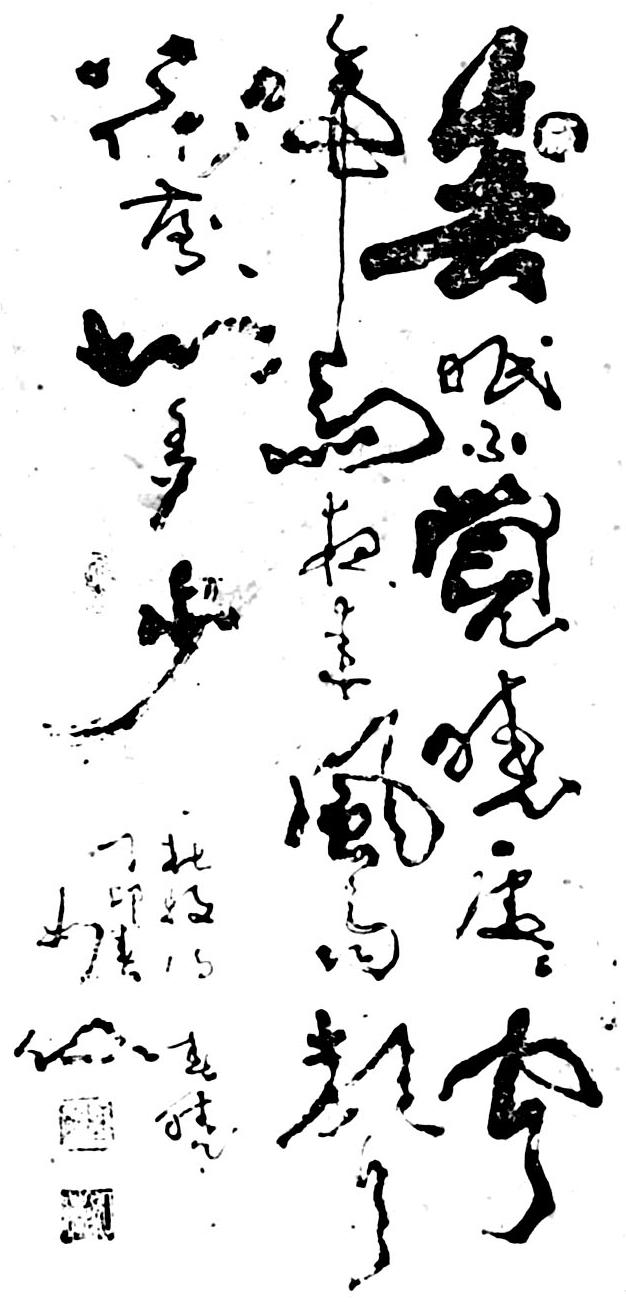 春眠不覺曉處々聞
啼鳥夜来風雨聲
花落知多少
春曉